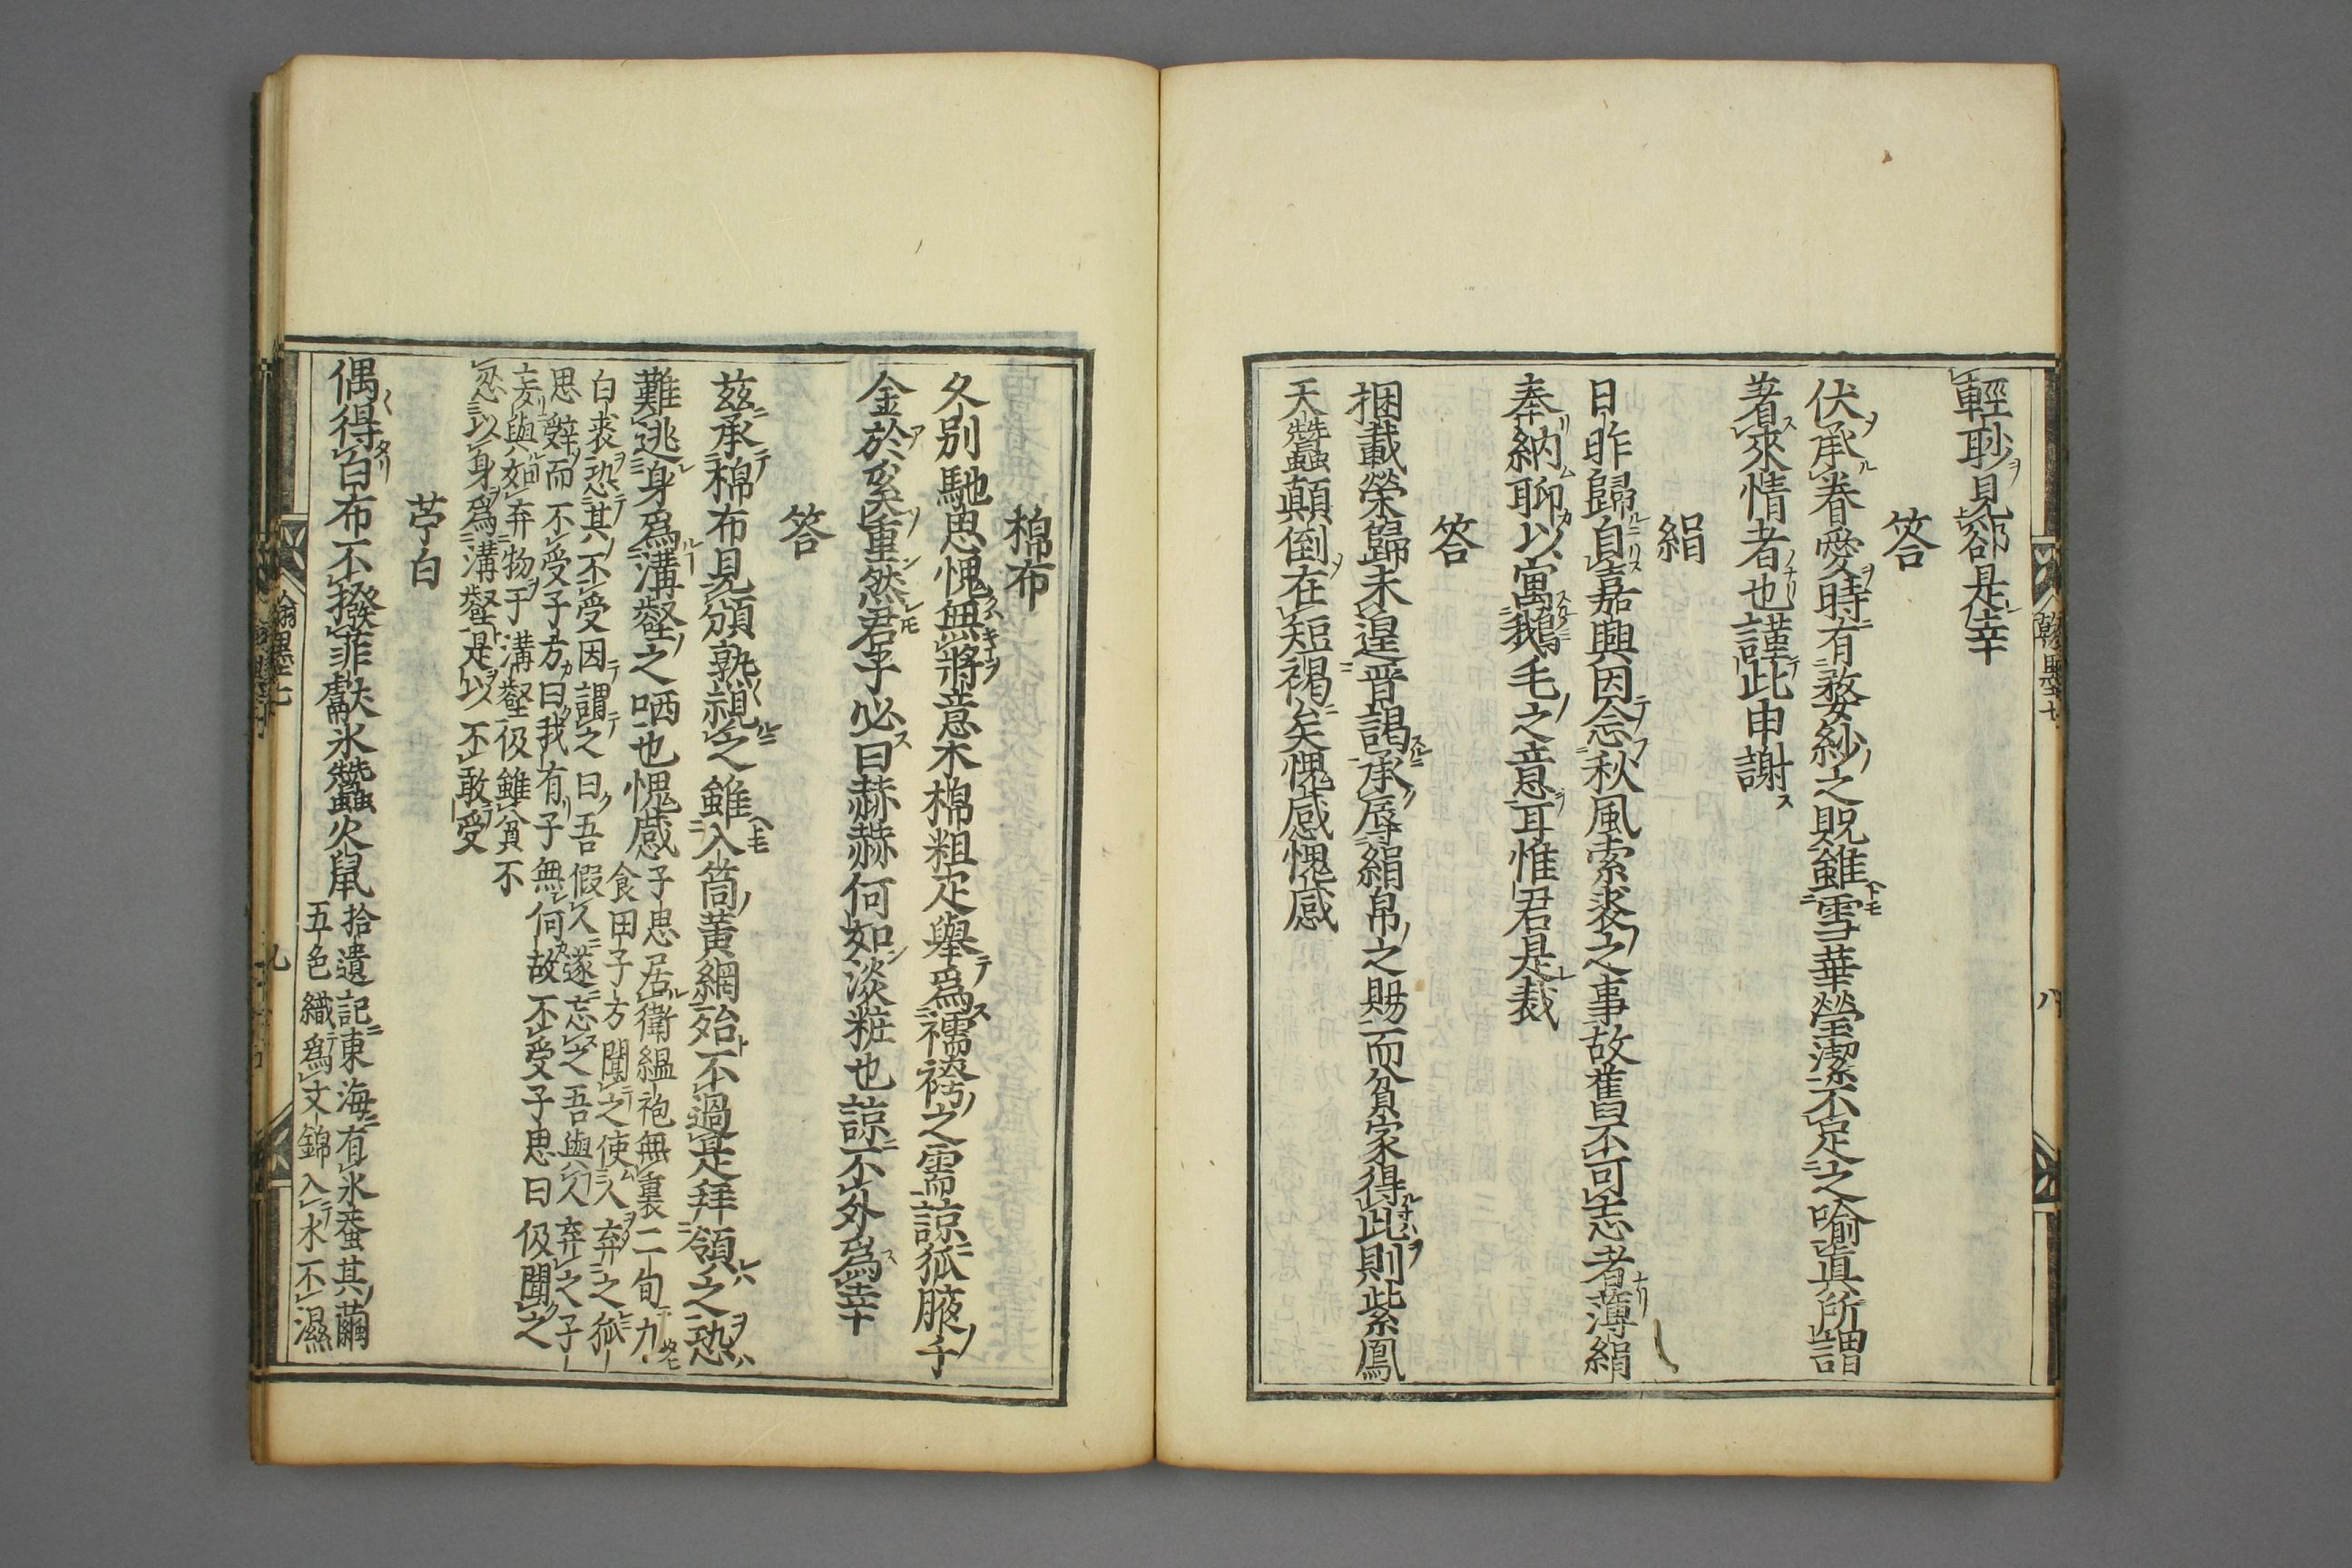 輕眇見郤是幸
答
伏承眷愛時有婺紗之貺雖雪華瑩潔不足之喻眞所謂
著來情者也謹此申謝
絹
日昨歸自嘉興因念秋風索裘之事故舊不可忘者薄絹
奉納聊以寓鵝毛之意耳惟君是裁
答
捆載榮歸未遑晋謁承辱絹帛之賜而貧家得此則紫鳳
天蠶顛倒在短褐矣愧感愧感
翰墨七
八
棉布
久別馳思愧無將意木棉粗疋舉爲襦袴之需諒狐腋千
金於奚重然君子必曰赫赫何如淡粧也諒不外爲幸
答
茲承棉布見頒熟視之雖入筒黃網殆不過是拜領之恐
難逃身爲溝壑之哂也愧感
子思居衛緼袍無裏二旬九
食田子方聞之使人弃之狐
白裘恐其不受因謂之曰吾假人遂忘之吾與人弃之子
思辤而不受子方曰我有子無何故不受子思曰伋聞之
妄與如弃物于溝壑伋雖貧不
忍以身爲溝壑是以不敢受
苧白
偶得白布不撥菲獻氷蠶火鼠
拾遺記東海有氷蚕其繭
五色織爲文錦入水不濕
翰墨七
九